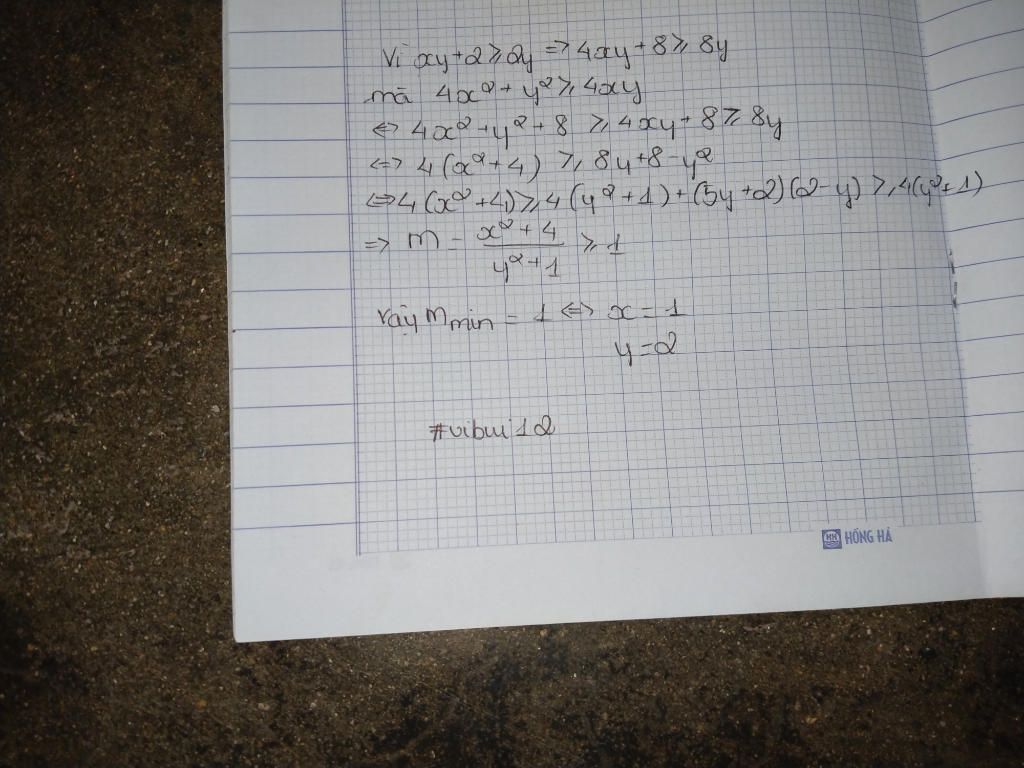 Vì xy+2≥2y => 4xy+8≥8y
mà 4x²+y²≥4xy
<=> 4x²+y²+8 ≥ 4xy+8≥8y
<=> 4(x²+4) ≥ 8y+8-y²
<=> 4(x²+4)≥4(y²+1)+(5y+2)(2-y)≥4(y²+1)
=> M = \frac{x²+4}{y²+1} ≥ 1
Vậy M min = 1 <=> x=1
y=2
#vibui12
HH HỒNG HÀ